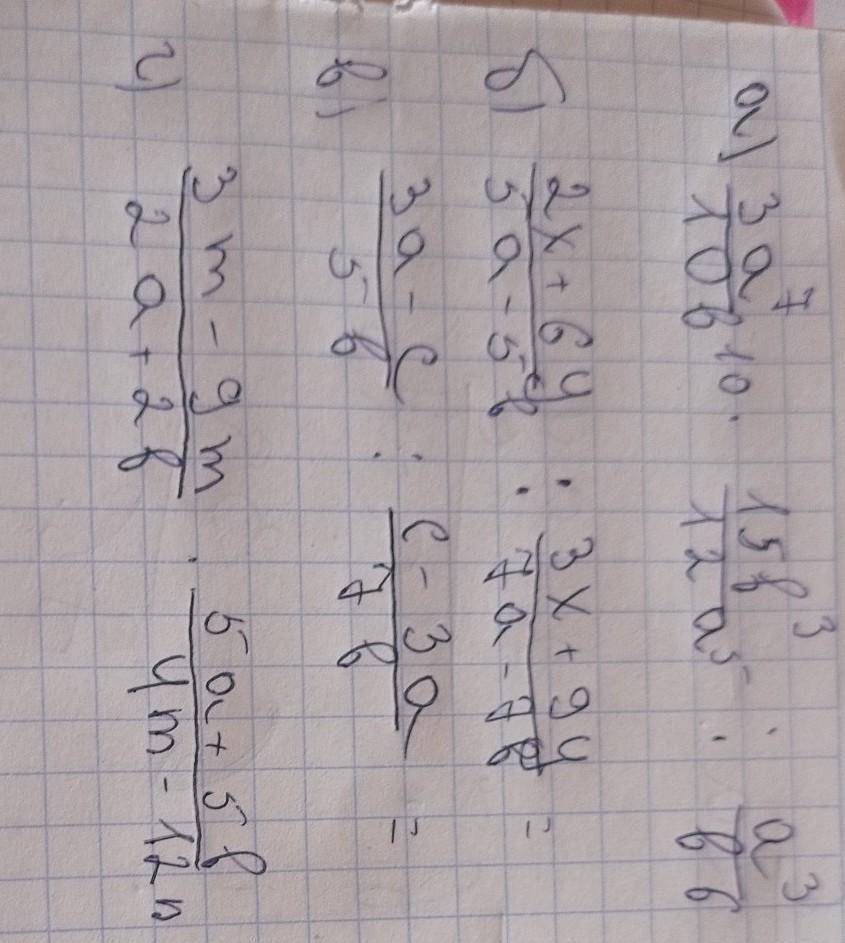 а) 3a⁷/10b¹⁰ · 15b³/12a⁵ : a³/b⁶
б) 2x+6y/5a-5b : 3x+9y/7a-7b =
в) 3a-c/5b : c-3a/7b =
г) 3m-9m/2a+2b · 5a+5b/4m-12n